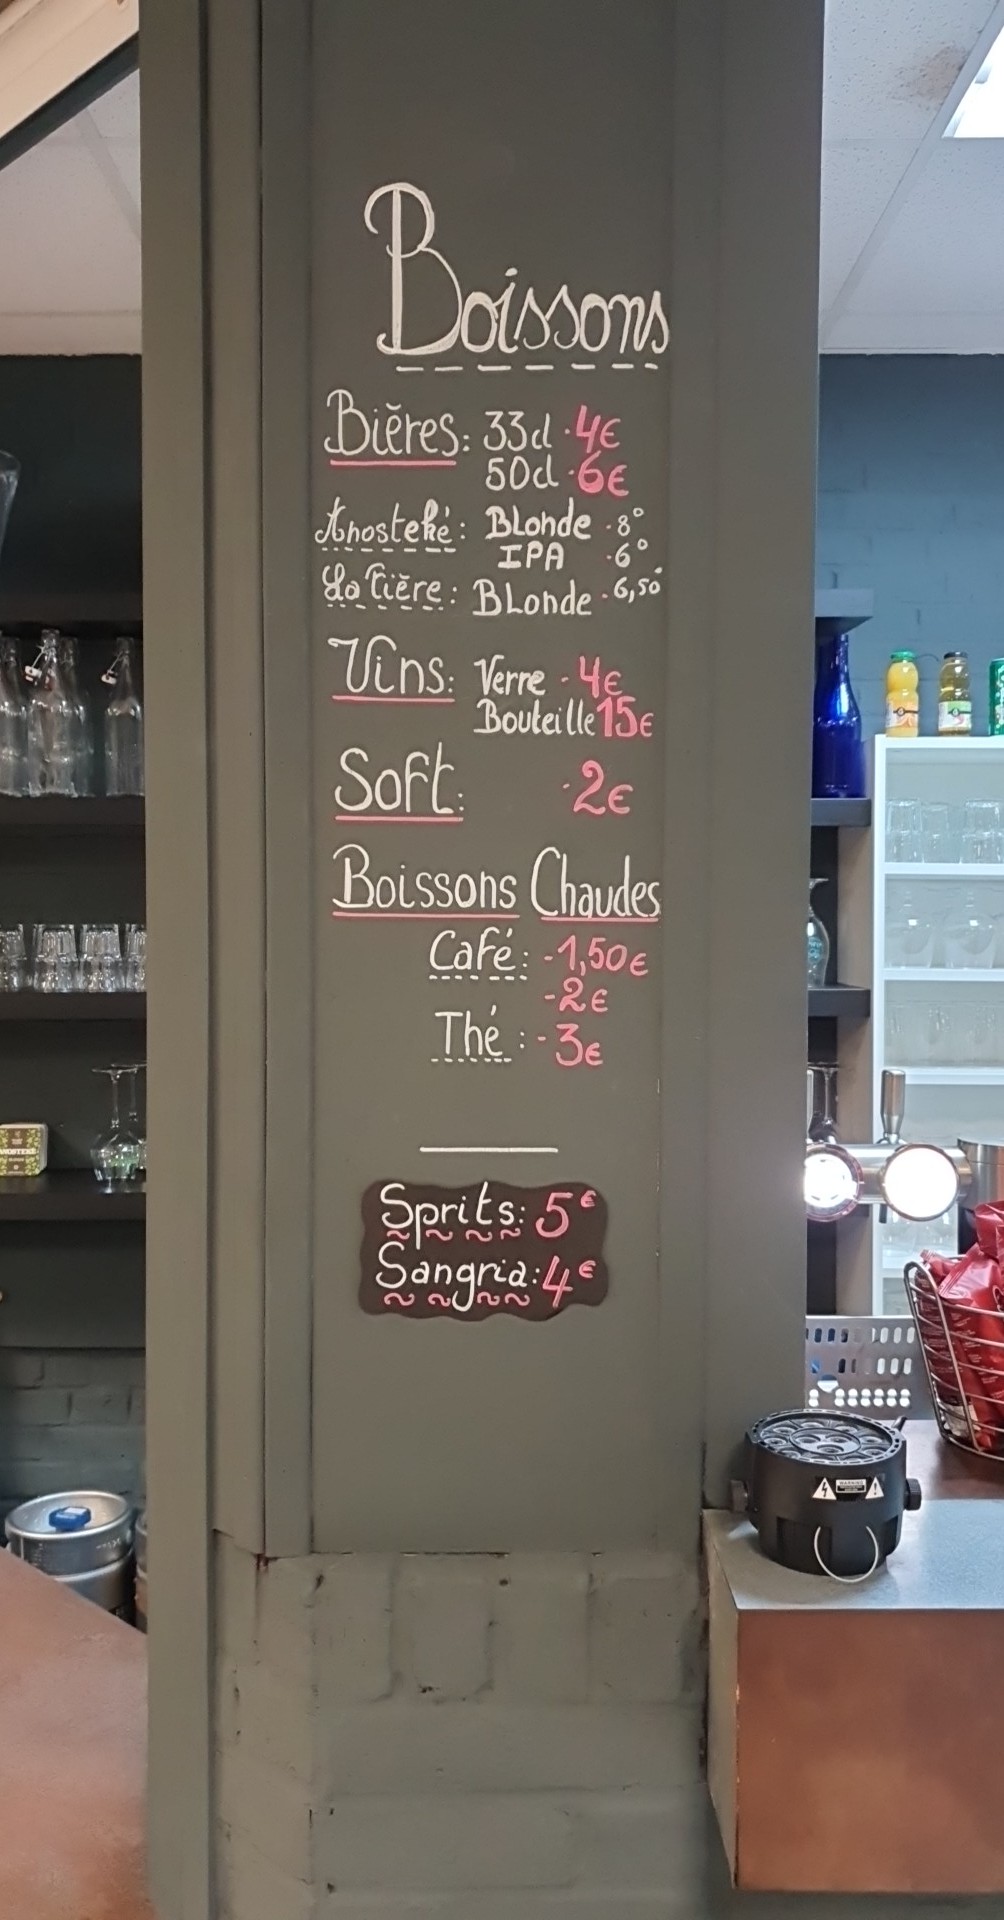 Boissons
Bières: 33cl · 4€
50cl · 6€
Anosteké: BLonde · 8°
IPA · 6°
La Tière: BLonde · 6,50°
Vins: Verre · 4€
Bouteille 15€
Soft: · 2€
Boissons Chaudes
Café: - 1,50€
- 2€
Thé: - 3€
Sprits: 5€
Sangria: 4€
ANOSTEKE
WARNING